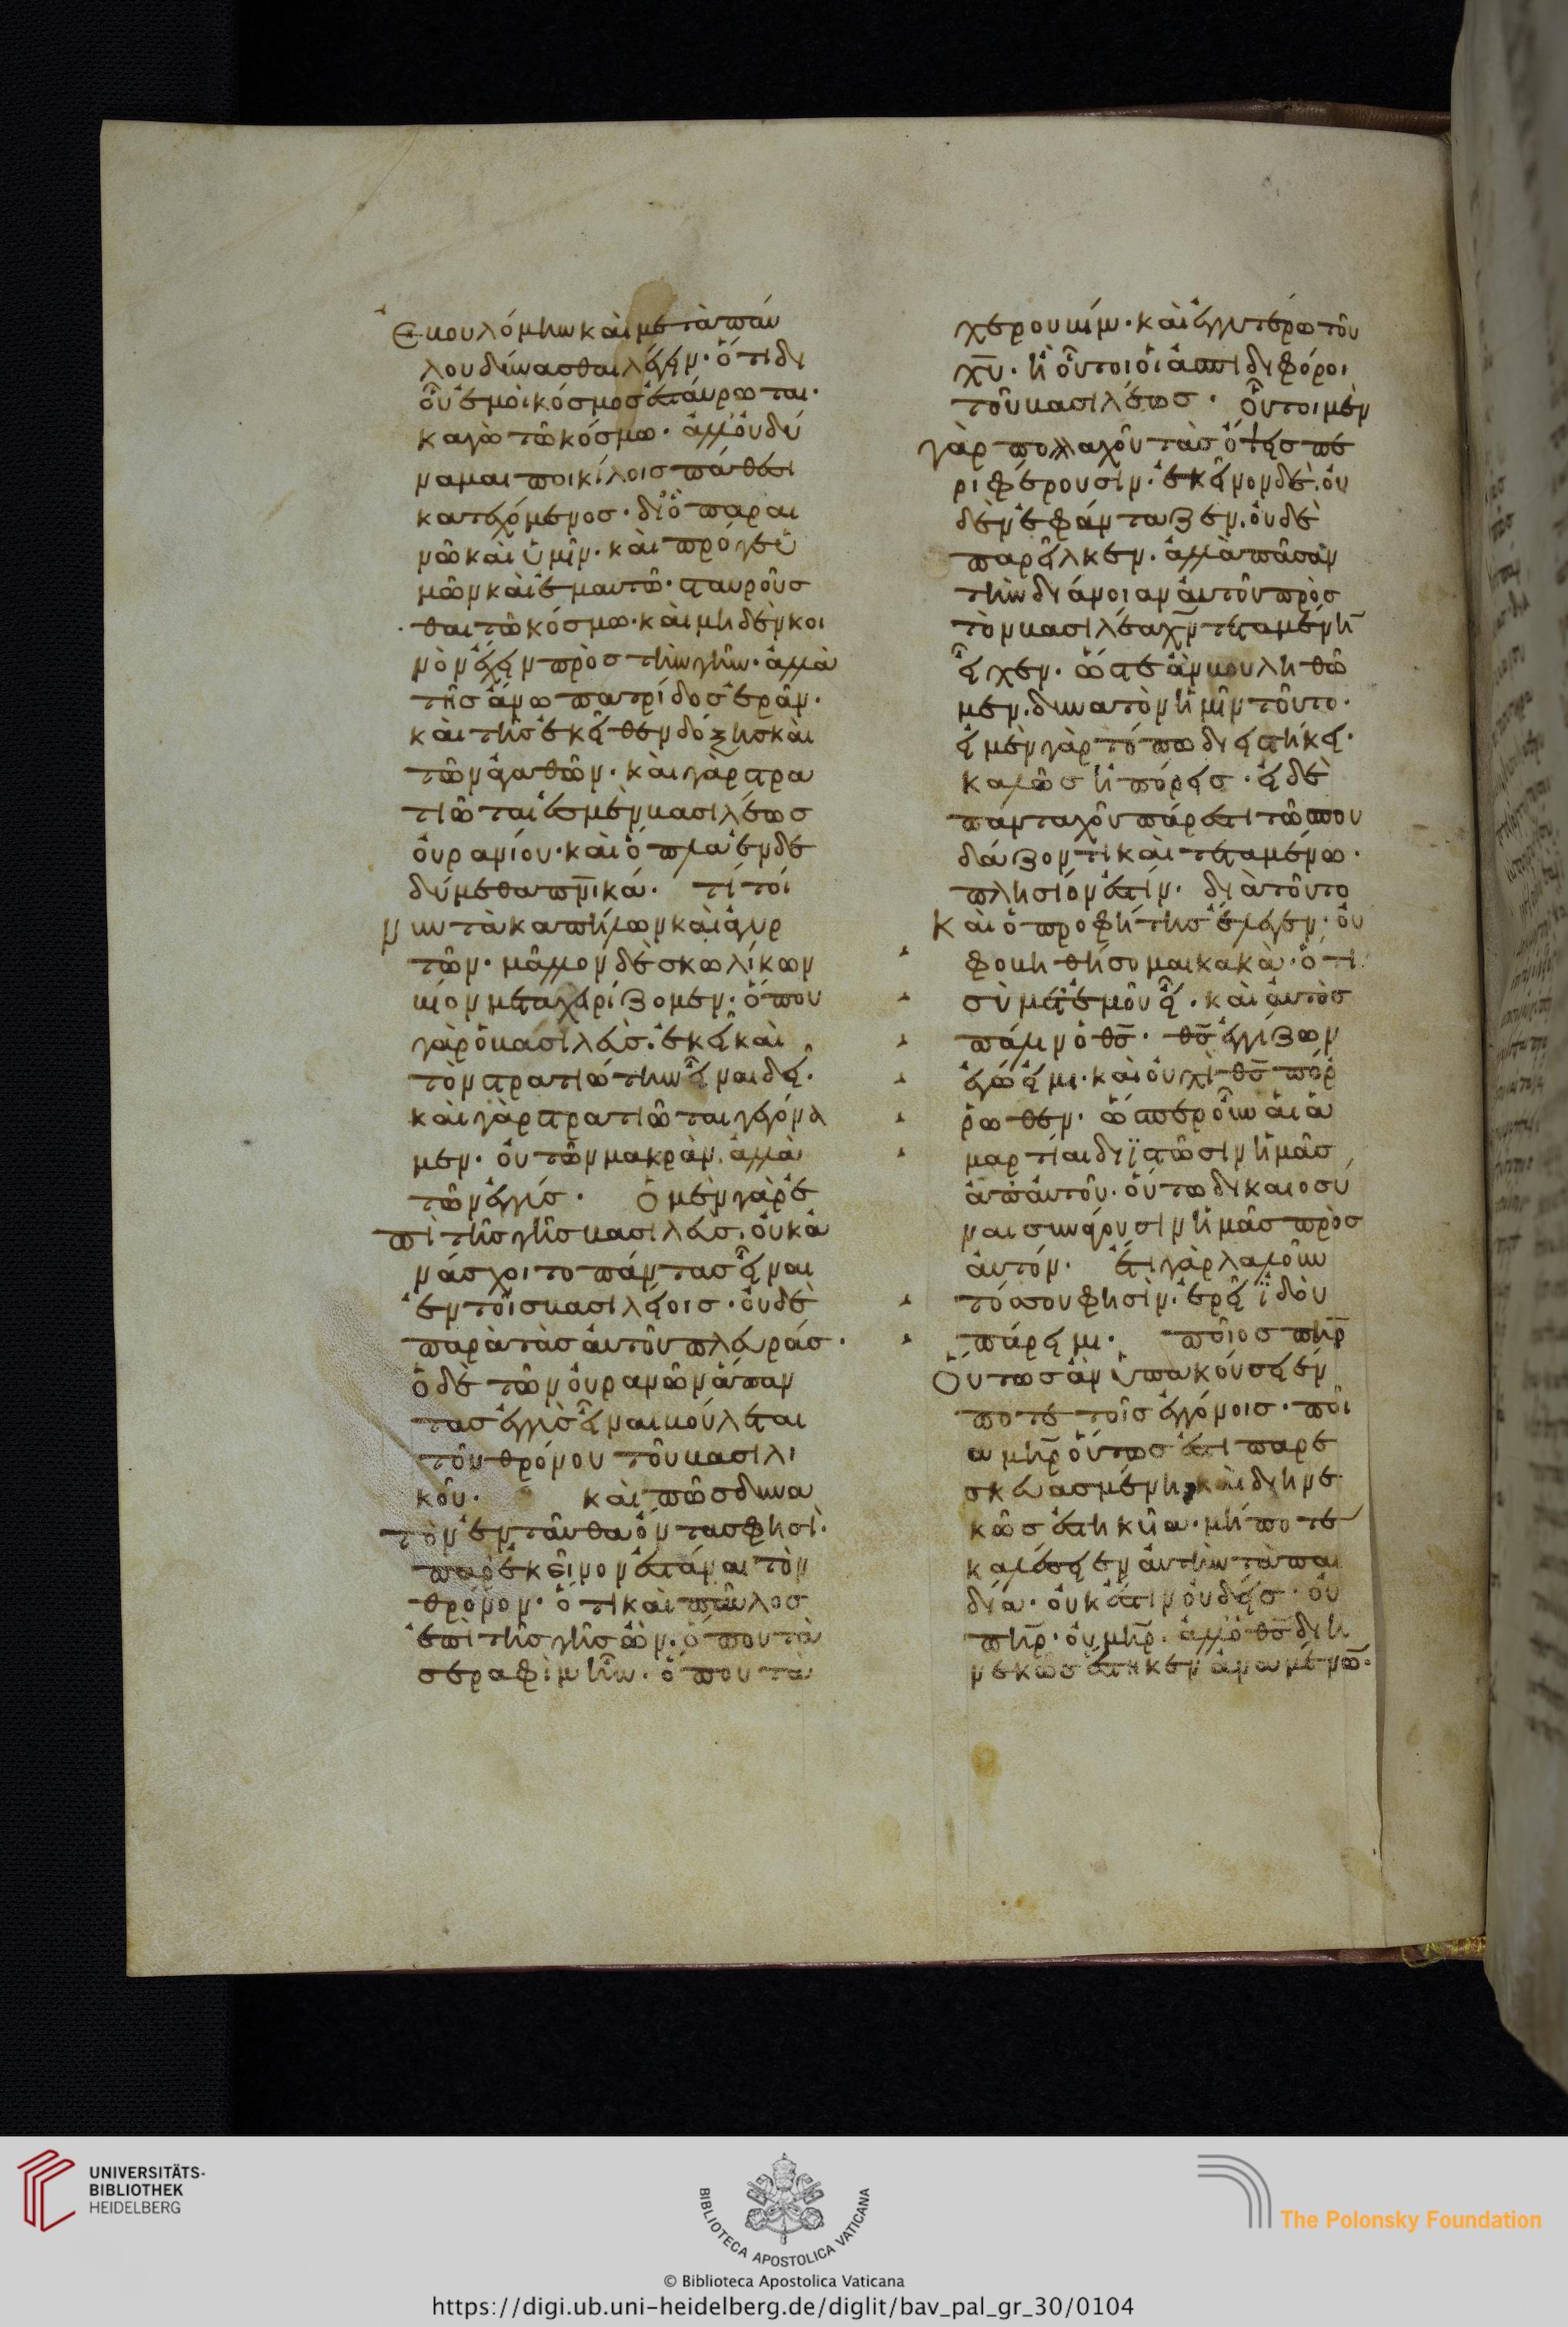 Ἐβουλόμην καὶ μετὰ παύ
λου δύνασθαι λέγειν· ὅτι δι
οὗ ἐμοὶ κόσμος ἐσταύρωται·
καγὼ τῶ κόσμω· ἀλλ' οὐ δύ
ναμαι ποικίλοις πάθεσι
κατεχόμενος· διὸ παραι
νῶ καὶ ὑμῖν· καὶ πρό γε ὑ
μῶν καὶ ἐμαυτῶ· σταυροῦσ
θαι τῶ κόσμω· καὶ μηδὲν κοι
νὸν ἔχειν πρὸς τὴν γῆν· ἀλλὰ
τῆς ἄνω πατρίδος ἐρᾶν·
καὶ τῆς ἐκεῖθεν δόξης καὶ
τῶν ἀγαθῶν· καὶ γὰρ στρα
τιῶται ἐσμὲν βασιλέως
οὐρανίου· καὶ ὅπλα ἐνδε
δύμεθα πνικά· τί τοί
νυν τὰ καπήλων καὶ ἀγυρ
τῶν· μᾶλλον δὲ σκωλίκων
βίον μεταχειρίζομεν· ὅπου
γὰρ ὁ βασιλεὺς· ἐκεῖ καὶ
τὸν στρατιώτην εἶναι δεῖ·
καὶ γὰρ στρατιῶται γεγόνα
μεν· οὐ τῶν μακρὰν, ἀλλὰ
τῶν ἐγγύς· Ὁ μὲν γὰρ ἐ
πὶ τῆς γῆς βασιλεὺς, οὐκ ἀ
νάσχοιτο πάντας εἶναι
ἐν τοῖς βασιλείοις· οὐδὲ
παρὰ τὰς αὐτοῦ πλευράς·
ὁ δὲ τῶν οὐρανῶν ἅπαν
τας ἐγγὺς εἶναι βούλεται
τοῦ θρόνου τοῦ βασιλι
κοῦ· καὶ πῶς δυνα
τὸν ἐνταῦθα ὄντας φησὶ·
παρ' ἐκεῖνον ἑστάναι τὸν
θρόνον· ὅτι καὶ παῦλος
ἐπὶ τῆς γῆς ὢν· ὅπου τὰ
σεραφὶμ ἦν· ὅπου τὰ
χερουβίμ· καὶ ἐγγυτέρω τοῦ
χυ· ἢ οὗτοι οἱ ἀσπιδιφόροι
τοῦ βασιλέως· οὗτοι μὲν
γὰρ πολλαχοῦ τὰς ὄψεις πε
ριφέρουσιν· ἐκεῖνον δὲ, οὐ
δὲν ἐφάνταζεν, οὐδὲ
παρεῖλκεν· ἀλλὰ πᾶσαν
τὴν διάνοιαν αὐτοῦ πρὸς
τὸν βασιλέα χν τεταμένην
εἶχεν· ὥστε ἂν βουληθῶ
μεν, δυνατὸν ἡμῖν τοῦτο·
εἰ μὲν γὰρ τόπω διειστήκει·
καλῶς ἠπόρεις· εἰ δὲ
πανταχοῦ πάρεστι τῶ σπου
δάζοντι καὶ τεταμένω·
πλησίον ἐστίν· διὰ τοῦτο
Καὶ ὁ προφήτης ἔλεγεν· οὐ
φοβηθήσομαι κακὰ· ὅτι
σὺ μετ' ἐμοῦ εἶ· καὶ αὐτὸς
πάλιν ὁ θς· θς ἐγγίζων
ἐγώ εἰμι· καὶ οὐχὶ θς πόρ
ρωθεν· ὥσπερ οὖν αἱ ἁ
μαρτίαι διϊστῶσιν ἡμᾶς
ἀπ' αὐτοῦ· οὕτω δικαιοσύ
ναι συνάγουσιν ἡμᾶς πρὸς
αὐτόν· ἔτι γὰρ λαλοῦν
τός σου φησὶν· ἐρεῖ ἰδοὺ
πάρειμι· ποῖος πηρ
Οὕτως ἂν ὑπακούσειέν
ποτε τοῖς ἐγγόνοις· ποί
α μηρ οὕτως ἐστὶ παρε
σκευασμένη, καὶ διηνε
κῶς ἑστηκῦια· μήποτε
καλέσειεν αὐτὴν τὰ παι
δία· οὐκ ἔστιν οὐδεὶς· οὐ
πηρ· οὐ μηρ· ἀλλ' ὁ θς διη
νεκῶς ἕστηκεν ἀναμένων·
UNIVERSITÄTS-
BIBLIOTHEK
HEIDELBERG
BIBLIOTECA APOSTOLICA VATICANA
The Polonsky Foundation
© Biblioteca Apostolica Vaticana
https://digi.ub.uni-heidelberg.de/diglit/bav_pal_gr_30/0104